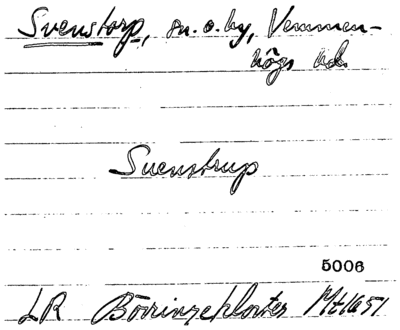 Svenstorp, sn. o. by, Vemmen-
högs hd.
Suenstrup
5006
LR Börringekloster Mt 1651